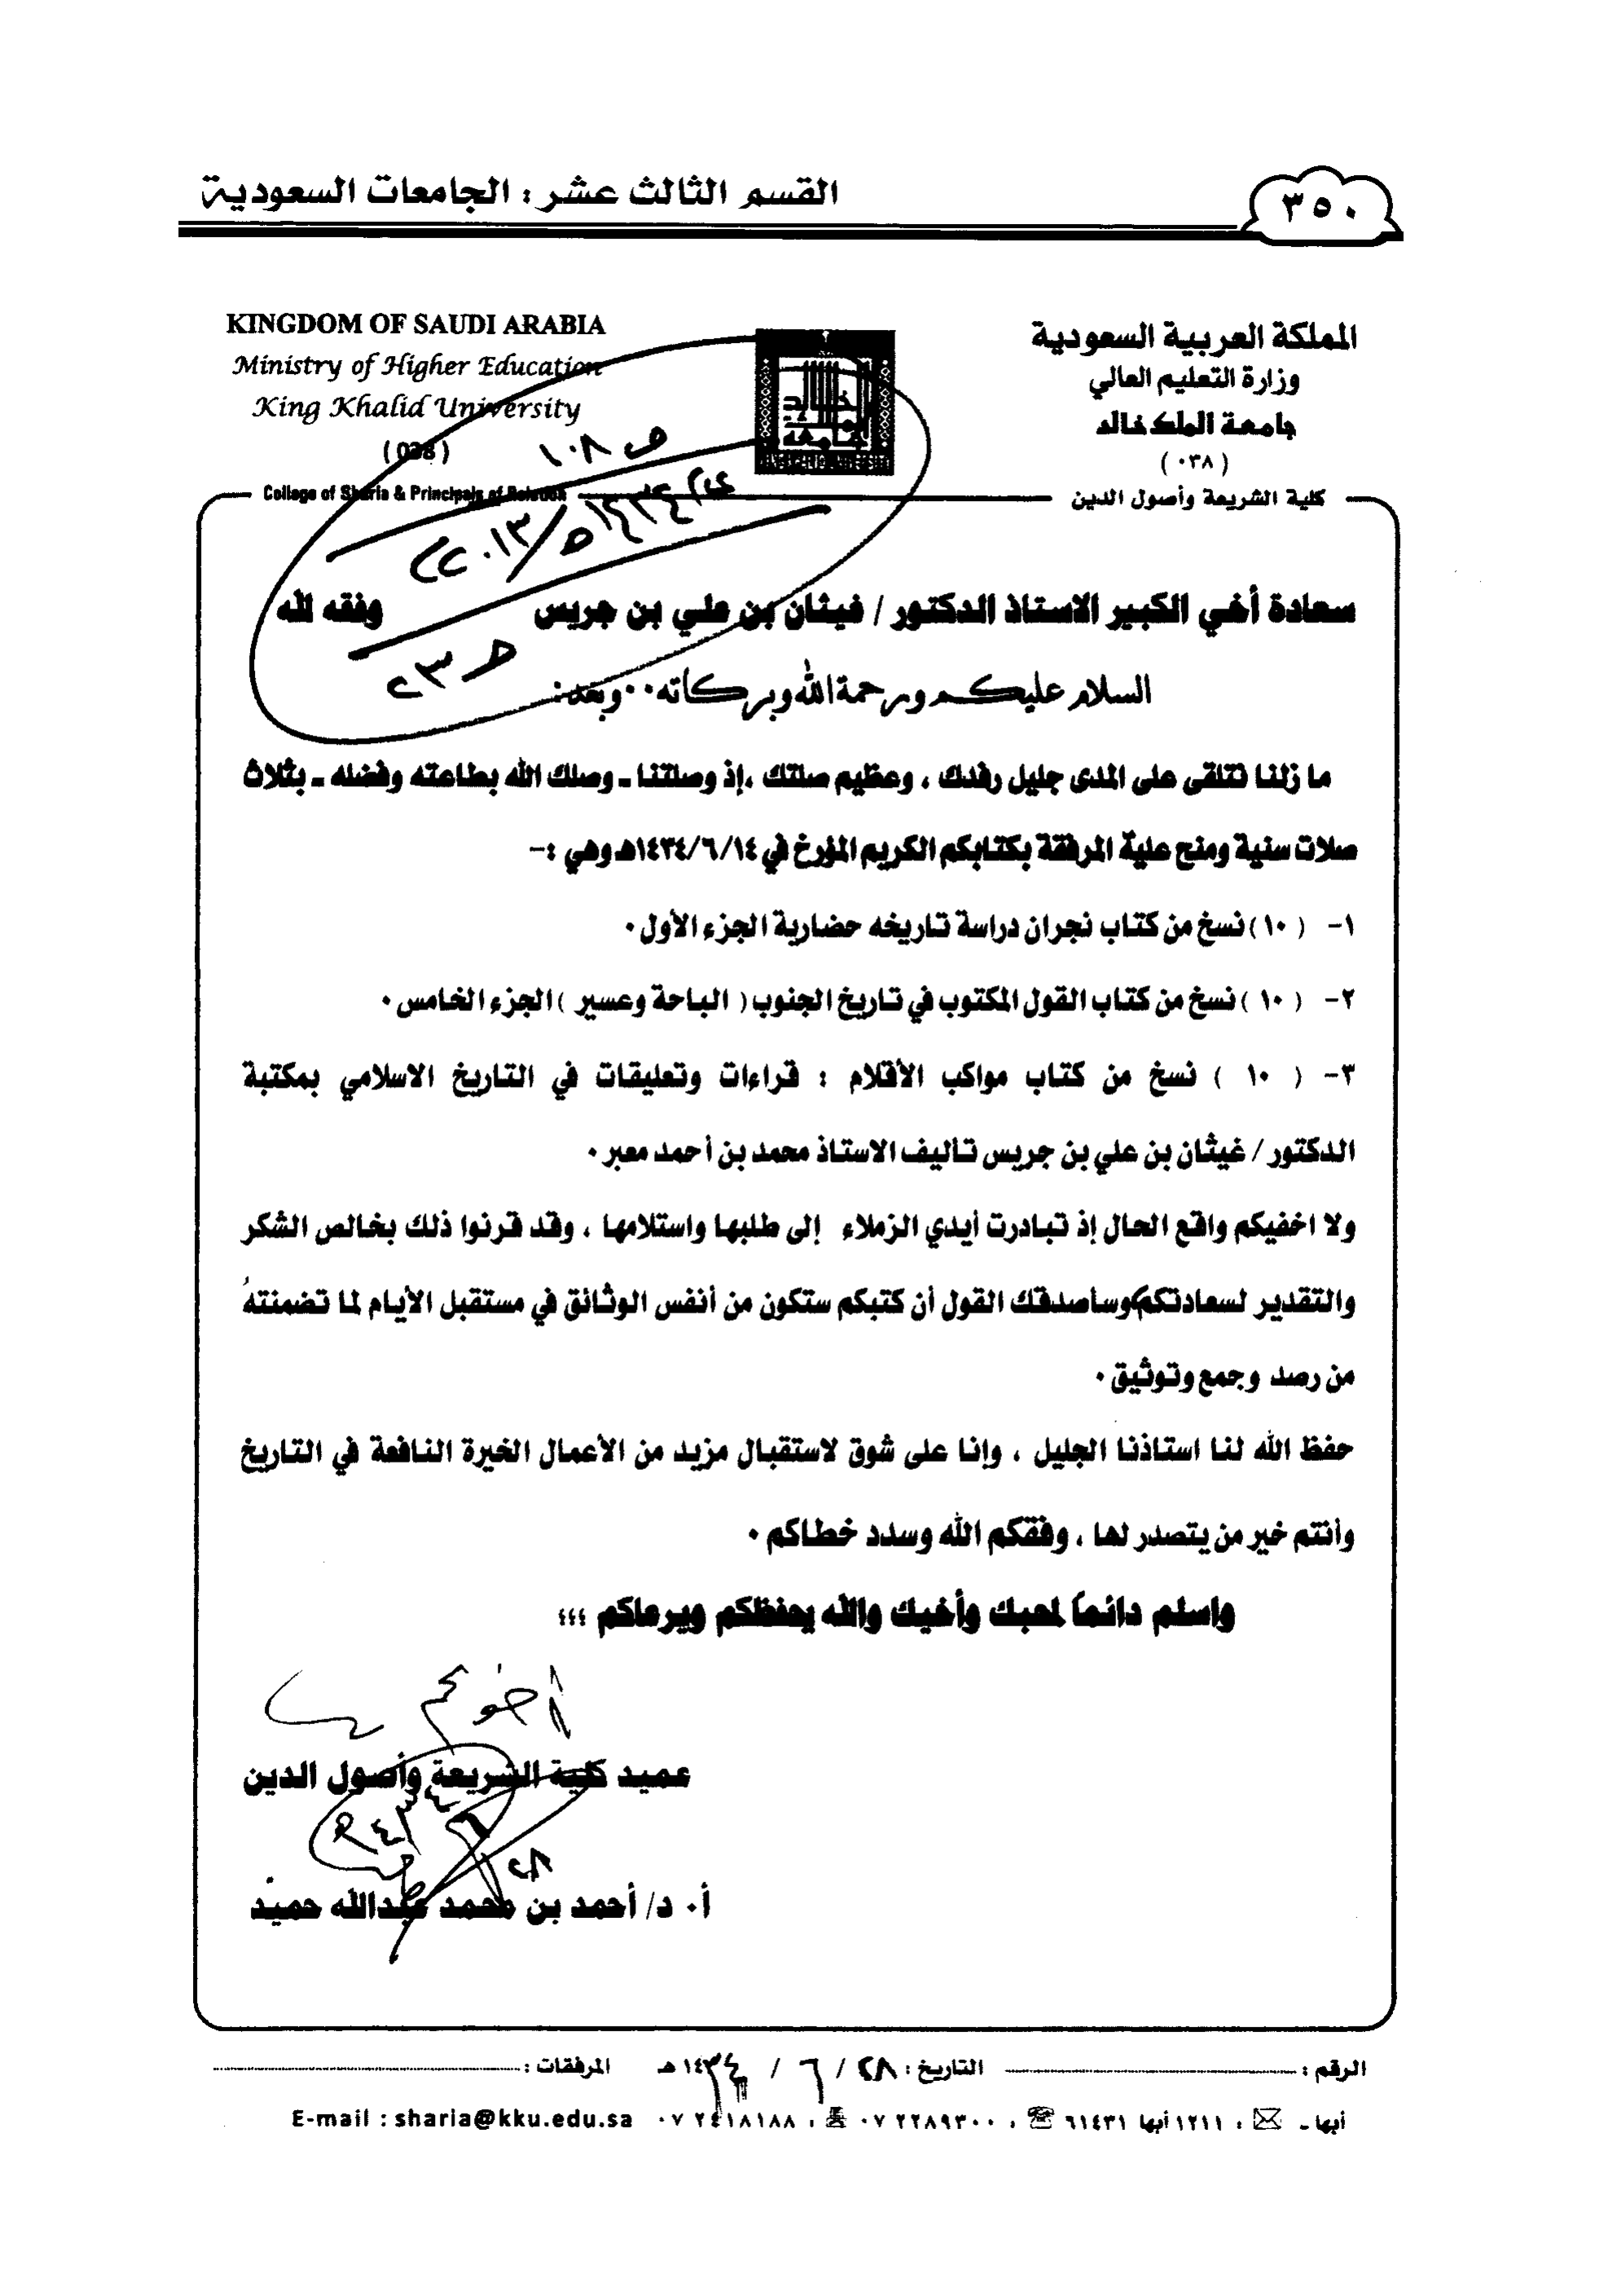 القسم الثالث عشر : الجامعات السعودية
٣٥٠
المملكة العربية السعودية
وزارة التعليم العالي
جامعة الملك خالد
( ٠٣٨ )
كلية الشريعة وأصول الدين
KINGDOM OF SAUDI ARABIA
Ministry of Higher Education
King Khalid University
( 038 )
Collage of Sharia & Principals of
ص ١٠٨
سعادة أخي الكبير الاستاذ الدكتور / غيثان بن علي بن جريس وفقه لله
السلام عليكم ورحمة الله وبركاته ٠٠ وبعد :
ما زلنا نتلقى على المدى جليل رفدك ، وعظيم صلتك ،إذ وصلتنا ـ وصلك الله بطاعته وفضله ـ بثلاث
صلات سنية ومنح عليةّ المرفقة بكتابكم الكريم المؤرخ في ١٤٣٤/٦/١٤هـ وهي :-
١- ( ١٠ ) نسخ من كتاب نجران دراسة تاريخه حضارية الجزء الأول ٠
٢- ( ١٠ ) نسخ من كتاب القول المكتوب في تاريخ الجنوب ( الباحة وعسير ) الجزء الخامس ٠
٣- ( ١٠ ) نسخ من كتاب مواكب الأقلام : قراءات وتعليقات في التاريخ الاسلامي بمكتبة
الدكتور / غيثان بن علي بن جريس تأليف الاستاذ محمد بن أحمد معبر ٠
ولا اخفيكم واقع الحال إذ تبادرت أيدي الزملاء إلى طلبها واستلامها ، وقد قرنوا ذلك بخالص الشكر
والتقدير لسعادتكم وسأصدقك القول أن كتبكم ستكون من أنفس الوثائق في مستقبل الأيام لما تضمنتهُ
من رصد وجمع وتوثيق ٠
حفظ الله لنا استاذنا الجليل ، وإنا على شوق لاستقبال مزيد من الأعمال الخيرة النافعة في التاريخ
وأنتم خير من يتصدر لها ، وفقكم الله وسدد خطاكم ٠
واسلم دائماً لمحبك وأخيك والله يحفظكم ويرعاكم ؛؛؛
أخوكم
عميد كلية الشريعة وأصول الدين
أ٠ د/ أحمد بن محمد عبدالله حميد
الرقم : التاريخ : ٢٨ / ٦ / ١٤٣٤هـ المرفقات :
أبها ـ ، ١٢١١ أبها ٦١٤٣١ ، ٠٧ ٢٢٨٩٣٠٠ ، ٠٧ ٢٤١٨١٨٨ E-mail : sharia@kku.edu.sa